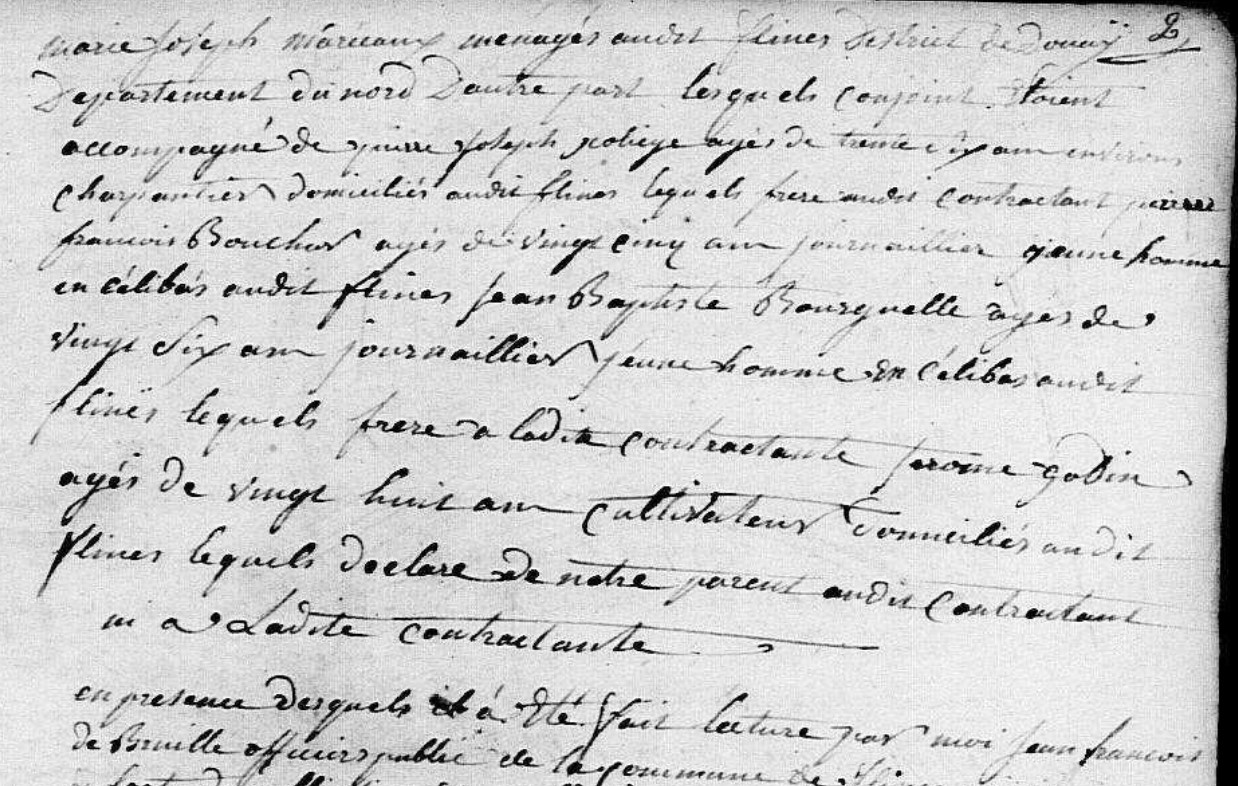 marie joseph mareauxménagés audit flines District de Douaÿ 2
Departement du nord Dautre part lesquels conjoint Etoient
accompagné de pierre joseph agés de trente six ans environs
charpantier domiciliés audit flines lequels frere audit contractant pierre
francois Boucher agés de vingt cinq ans journaillier jeune homme
en célibas audit flines jean Baptiste Bourguelle agés de
vingt six ans journaillier jeune homme en célibas audit
flines lequels frere a ladite contractante jerome godin
agés de vingt huit ans cultivateur Domiciliés audit
flines lequels declare de netre parent audit Contractant
ni a Ladite contractante
en presence desquels il á Eté fait lecture par moi jean francois
de Bruille officiers public de la commune de flines